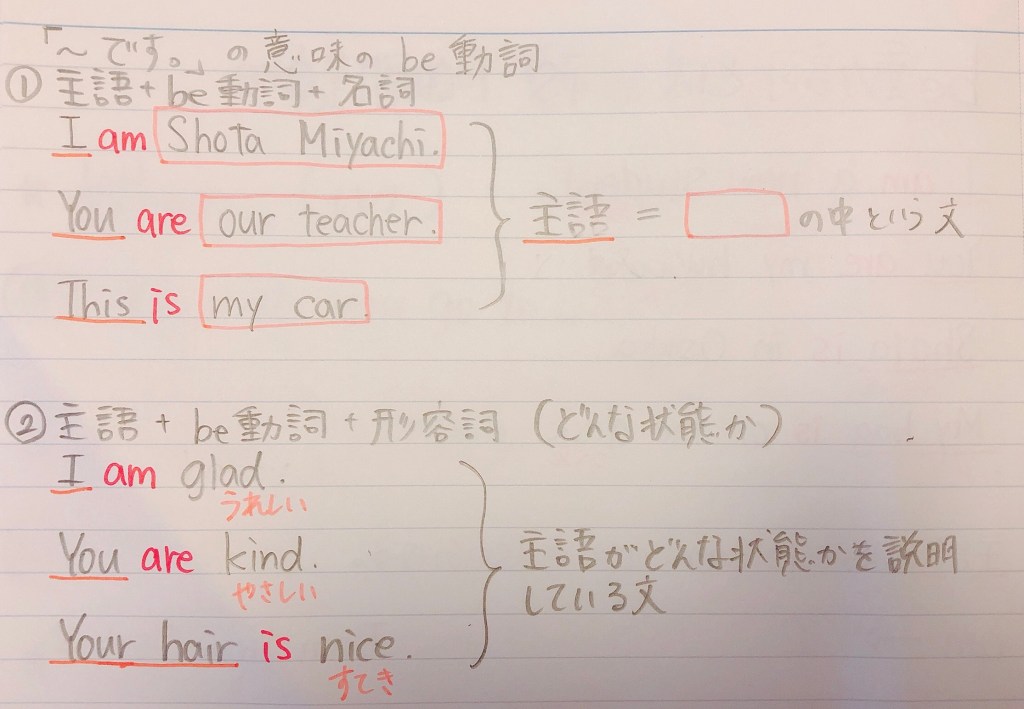 「～です。」の意味のbe動詞
① 主語+be動詞+名詞
I am Shota Miyachi.
You are our teacher.
This is my car.
主語 = の中という文
② 主語+be動詞+形容詞(どんな状態か)
I am glad.
うれしい
You are kind.
やさしい
Your hair is nice.
すてき
主語がどんな状態かを説明
している文